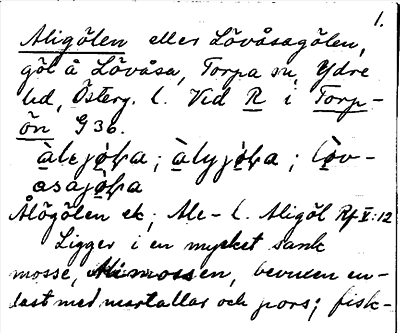 1.
Aligölen eller Lövåsagölen,
göl å Lövåsa, Torpa sn, Ydre
hd, Österg. l. Vid R i Torp-
ön G 36.
àlejö̀ḷa; àlyjö̀ḷa; lö̀v-
asajö̀ḷa
Ålögölen ek; Ale- l. Aligöl Rf V:12
Ligger i en mycket sank
mosse, Alimossen, bevuxen en-
dast med martallar och pors; fisk-